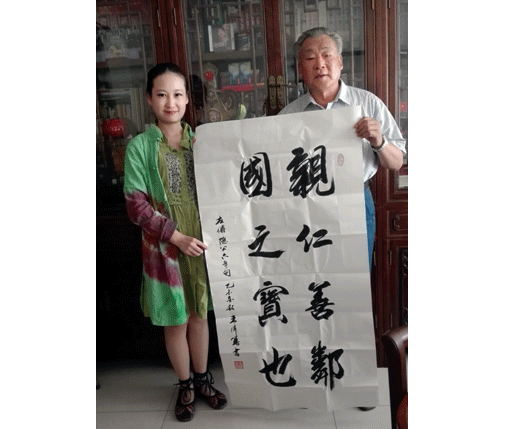 親仁善鄰
國之寶也
左傳 隱公六年句 乙未春秋 王
書